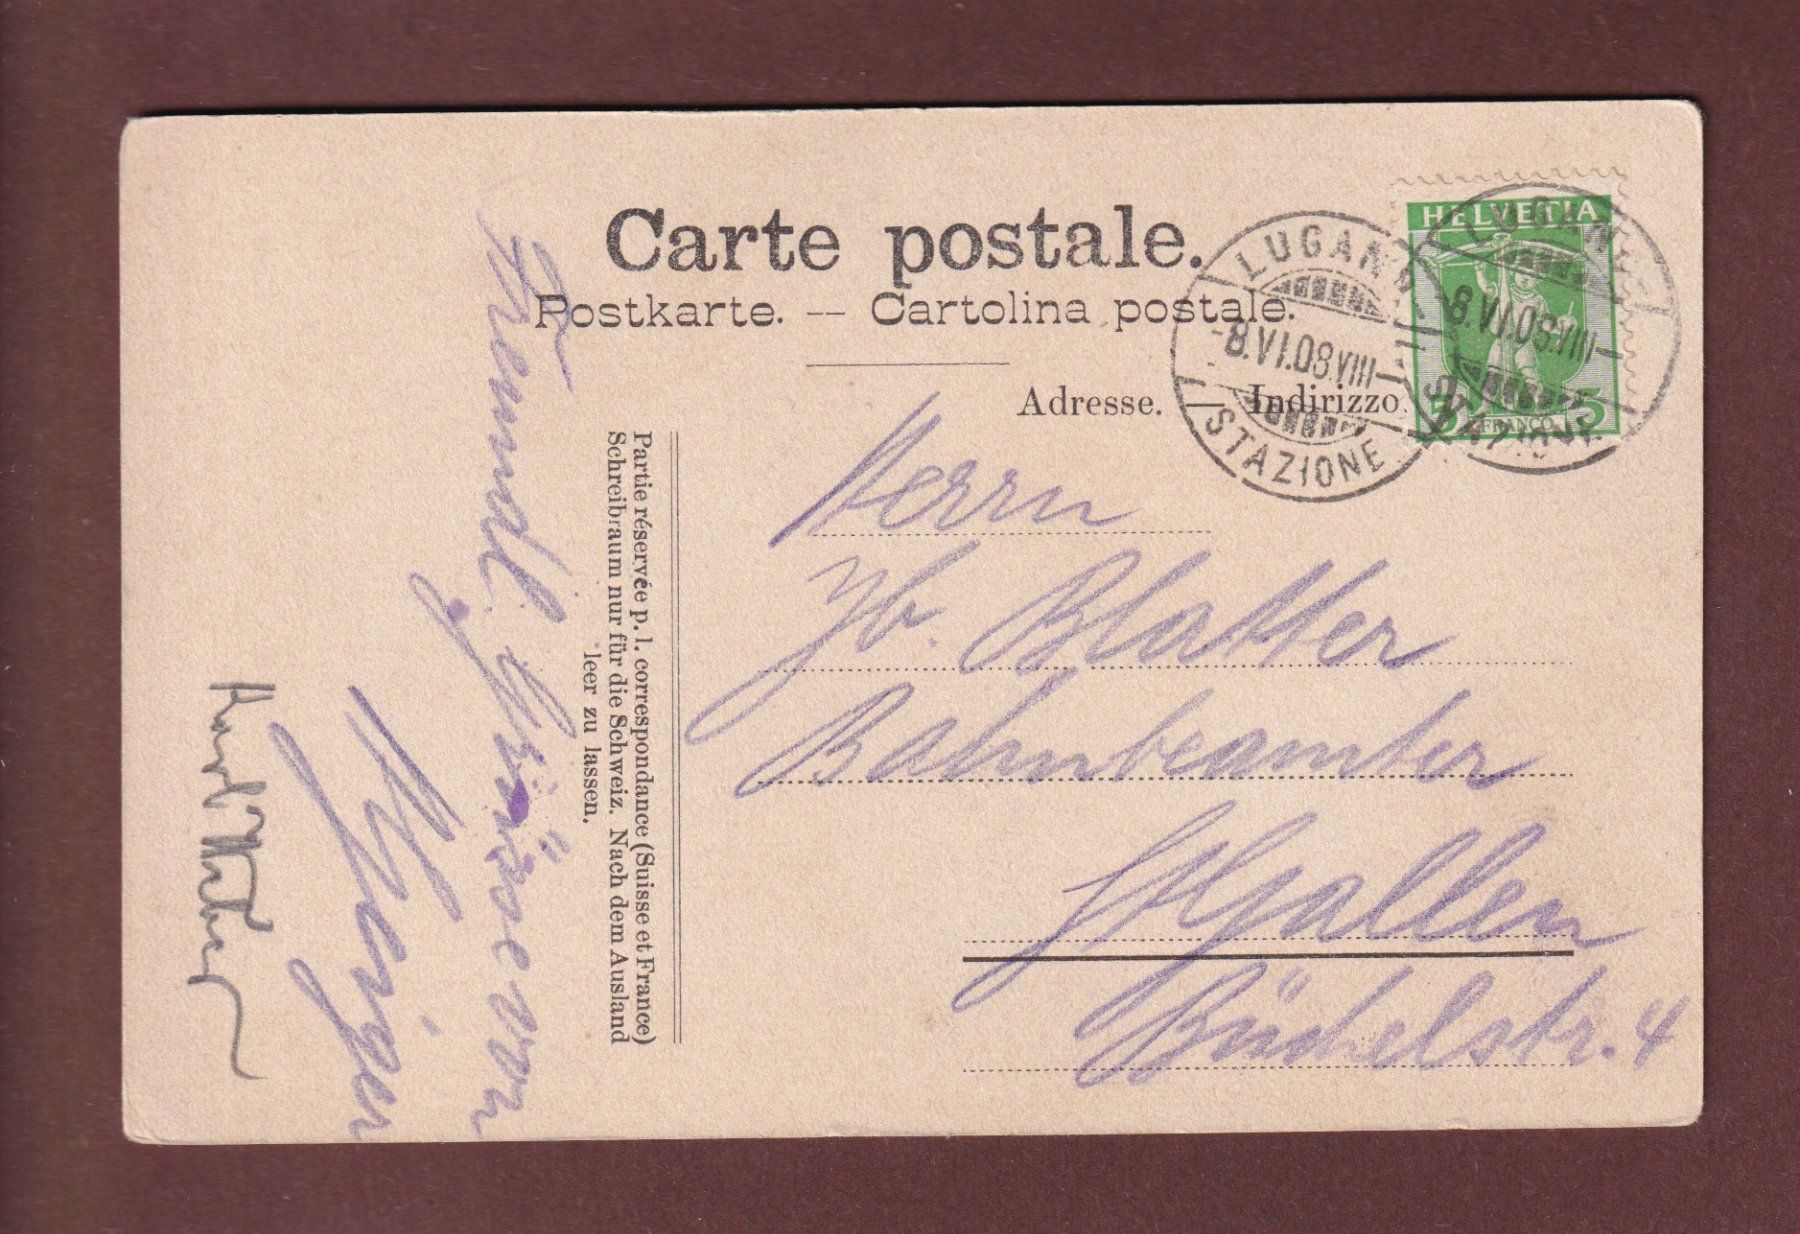 Carte postale.
Postkarte. -- Cartolina postale.
Adresse. Indirizzo.
HELVETIA
5 5
FRANCO
LUGANO
-8.VI.08.VIII-
STAZIONE
LUGANO
-8.VI.08.VIII-
STAZIONE
Partie réservée p. l. correspondance (Suisse et France)
Schreibraum nur für die Schweiz. Nach dem Ausland
leer zu lassen.
Herrn
Jb. Blatter
Bahnbeamter
St Gallen
Büchelstr. 4
Freundl. Grüsse von